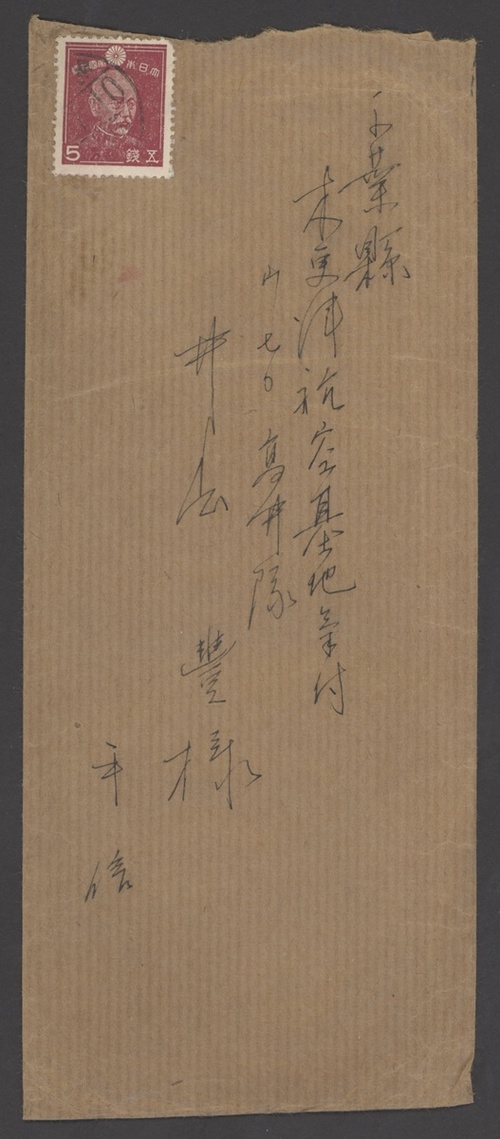 千葉縣
木更津航空基地気付
七〇 高井隊
井 豐 様
平信
大日本帝國郵便
5 五錢